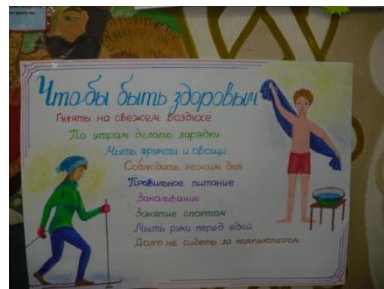 Чтобы быть здоровым
Гулять на свежем воздухе
По утрам делать зарядку
Мыть фрукты и овощи
Соблюдать режим дня
Правильное питание
Закаливание
Занятие спортом
Мыть руки перед едой
Долго не сидеть за компьютером